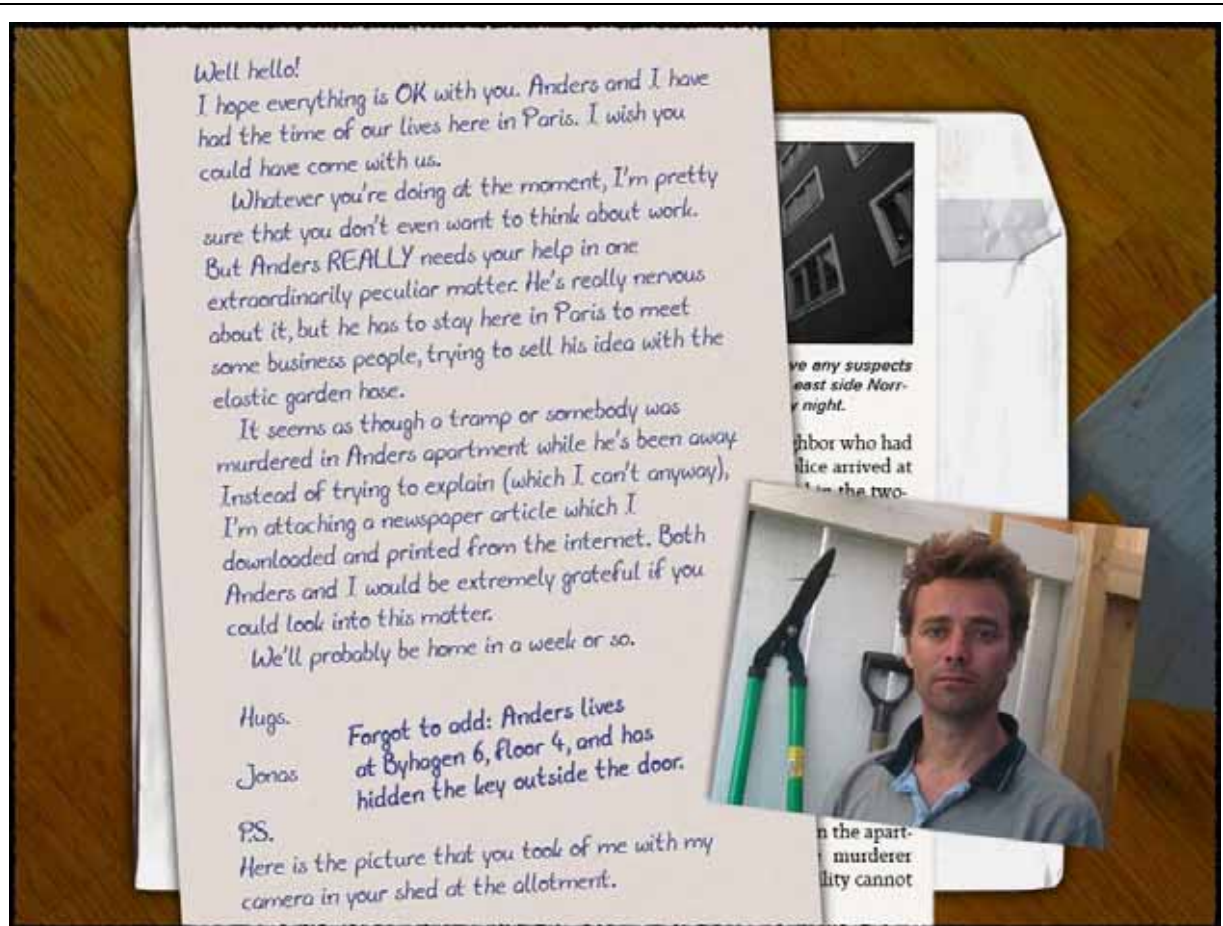 Well hello!
I hope everything is OK with you. Anders and I have
had the time of our lives here in Paris. I wish you
could have come with us.
Whatever you're doing at the moment, I'm pretty
sure that you don't even want to think about work.
But Anders REALLY needs your help in one
extraordinarily peculiar matter. He's really nervous
about it, but he has to stay here in Paris to meet
some business people, trying to sell his idea with the
elastic garden hose.
It seems as though a tramp or somebody was
murdered in Anders apartment while he's been away.
Instead of trying to explain (which I can't anyway),
I'm attaching a newspaper article which I
downloaded and printed from the internet. Both
Anders and I would be extremely grateful if you
could look into this matter.
We'll probably be home in a week or so.
Hugs.
Jonas
Forgot to add: Anders lives
at Byhagen 6, floor 4, and has
hidden the key outside the door.
P.S.
Here is the picture that you took of me with my
camera in your shed at the allotment.
any suspects
east side Norr-
night.
who had
arrived at
the two-
the apart-
murderer
cannot